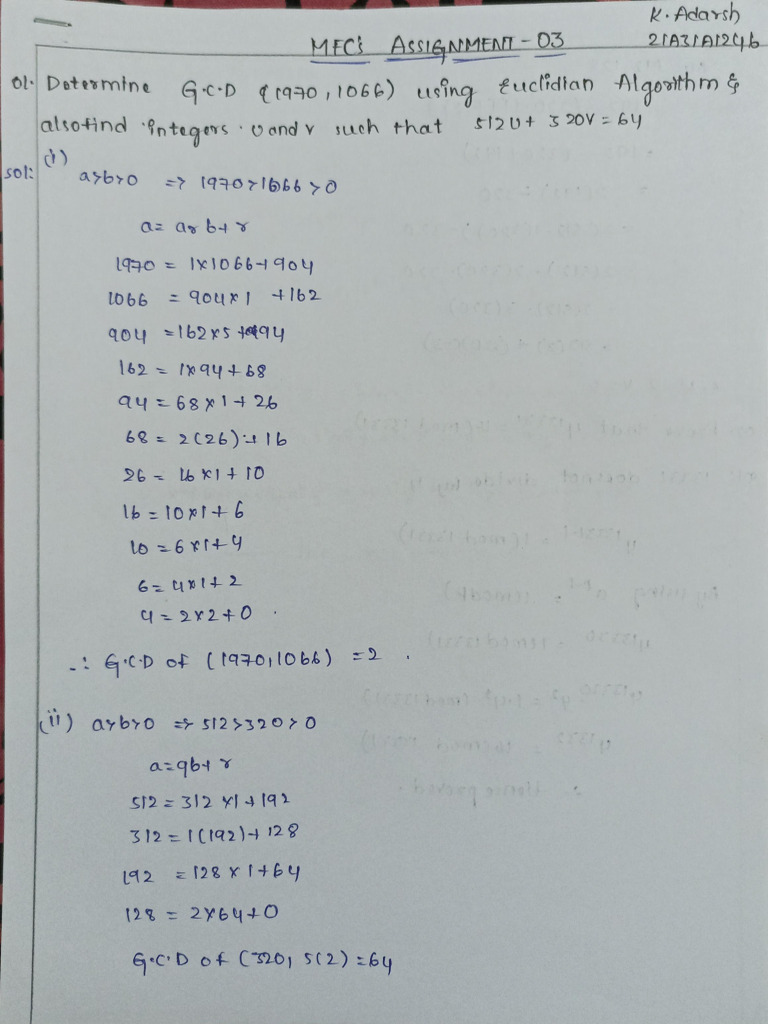 K. Adarsh
MFCS ASSIGNMENT - 03
21A31A1246
01. Determine G.C.D (1970, 1066) using Euclidian Algorithm &
also find integers u and v such that 512U + 320V = 64
sol: (i)
a>b>0 => 1970>1066>0
a = b + r
1970 = 1x1066+904
1066 = 904x1 +162
904 = 162x5 +94
162 = 1x94+68
94 = 68x1+26
68 = 2(26)+16
26 = 16x1+10
16 = 10x1+6
10 = 6x1+4
6 = 4x1+2
4 = 2x2+0 .
∴ G.C.D of (1970,1066) = 2 .
(ii) a>b>0 => 512>320>0
a=qb+r
512 = 312 x1+192
312 = 1(192)+128
192 = 128x1+64
128 = 2x64+0
G.C.D of (320, 512) = 64